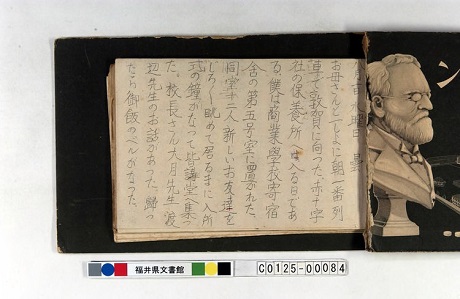 月 日 水曜日 曇
お母さんと一しよに朝一番列
車で敦賀に向つた。赤十字
社の保養所へ入る日であ
る。僕は商業学校寄宿
舎の第五号室に置かれた。
同室十二人 新しいお友達を
じろじろ眺めて居るまに入所
式の鐘がなつて皆講堂へ集つ
た。校長さん大月先生 渡
辺先生のお話があつた。帰つ
たら御飯のベルがなつた。
シ
福井県文書館
C0125-00084